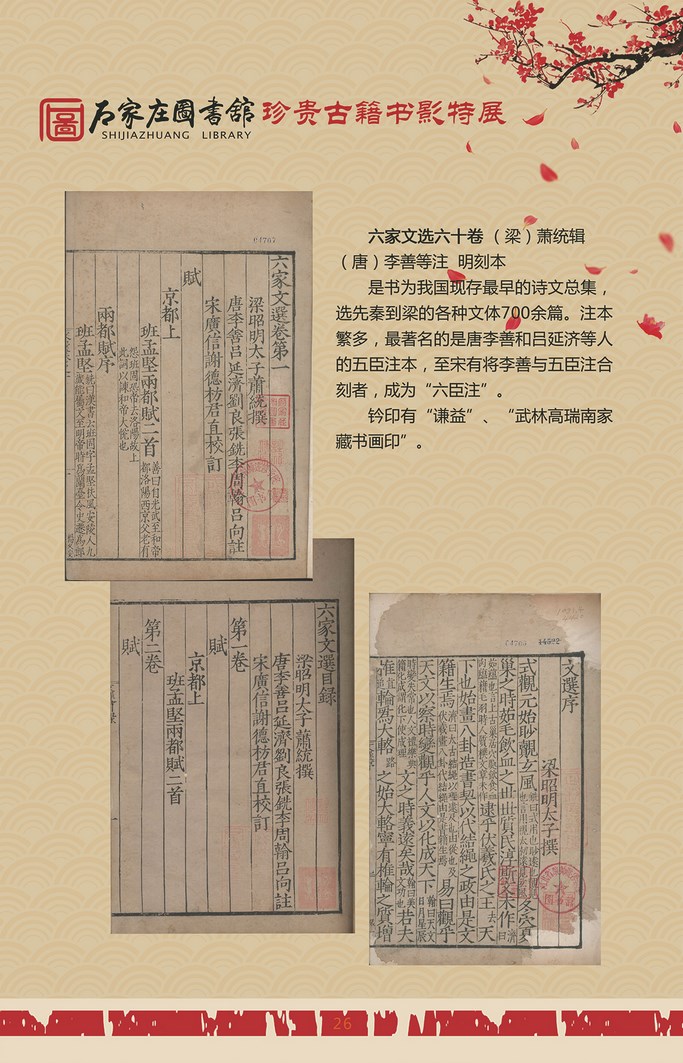 石家庄圖書舘 珍贵古籍书影特展
SHIJIAZHUANG LIBRARY
六家文选六十卷 （梁）萧统辑
（唐）李善等注 明刻本
是书为我国现存最早的诗文总集，
选先秦到梁的各种文体700余篇。注本
繁多，最著名的是唐李善和吕延济等人
的五臣注本，至宋有将李善与五臣注合
刻者，成为“六臣注”。
钤印有“谦益”、“武林高瑞南家
藏书画印”。
六家文選卷第一
梁昭明太子蕭統撰
唐李善呂延濟劉良張銑李周翰呂向註
宋廣信謝德枋君直校訂
賦
京都上
班孟堅兩都賦二首
兩都賦序
班孟堅
六家文選目録
梁昭明太子蕭統撰
唐李善呂延濟劉良張銑李周翰呂向註
宋廣信謝德枋君直校訂
第一卷
賦
京都上
班孟堅兩都賦二首
第二卷
賦
文選序
梁昭明太子撰
式觀元始眇覿玄風
冬穴夏
巢之時茹毛飲血之世世質民淳斯文未作
逮乎伏羲氏之王
天
下也始畫八卦造書契以代結繩之政由是文
籍生焉
易曰觀乎
天文以察時變觀乎人文以化成天下
文之時義遠矣哉
若夫
椎輪為大輅
之始大輅寧有椎輪之質增
26